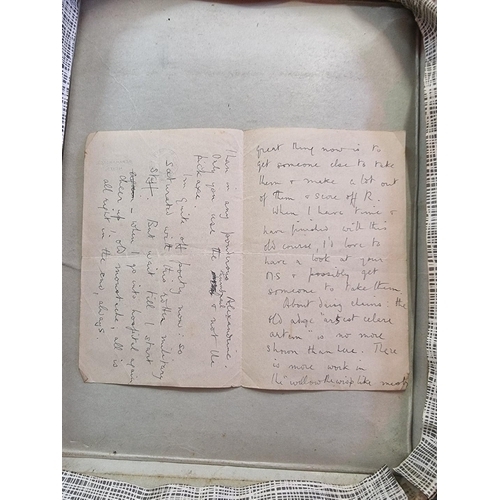 great thing now is to
get someone else to take
them & make a lot out
of them & score off R.
When I have time &
have finished with this
old course, I'd love to
have a look at your
MS & possibly get
someone to take them
About doing claims: the
old adage "ars est celare
artem" is no more
shown than here. There
is more work in
the
than in any ponderous Alexandrine.
Only you use the & not the
pickaxe.
I'm quite off poetry now: so
saturated with this rotten military
stuff. But wait till I start
when I go into hospital again
cheer up! old moustache, all is
all right in the end, always